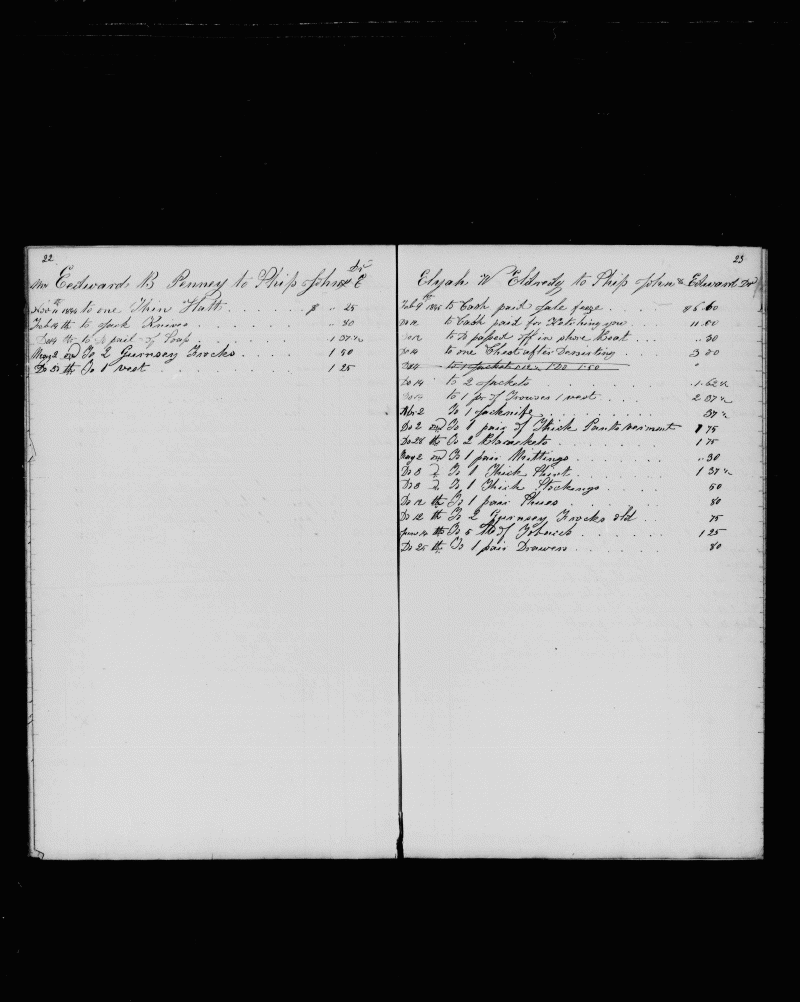 22
Dr
Mr Eedward B Penney to Ship John & E
11 1844 to one Thin Hatt $ .. 25
Feb 14 th to Jack Knives .. 30
to pail of Soap 1 37 ½
May 2 nd To 2 Gurnsey Frocks 1 50
Do 25 th To 1 vest 1 25
23
Elijah W Eldredg to Ship John & Edward Dr
Feb 9 th 1845 to Cash paid $6.60
to Cash paid for Ketching you 11.00
to Do passed off in shore Boat .. 30
Do 14 to one Chest after Deserting 3 00
Do 14 to 2 Jackets 1.62 ½
to 1 pr of Trouses 1 vest 2 37 ½
2 To 1 Jacknife 37 ½
Do 2 nd To 1 pair of Thick Pants 1 75
Do 28 th To 2 Blanckets 1 75
May 2 nd To 1 pair Mittings .. 30
Do 3 d To 1 Thick Shirt 1 37 ½
Do 3 d To 1 Thick Stockings 50
Do 12 th To 1 pair Shues 80
Do 12 th To 2 Gurnsey Frocks old 75
June 14 th To 5 lb of Tobacco 1 25
Do 25 th To 1 pair Drawers 80